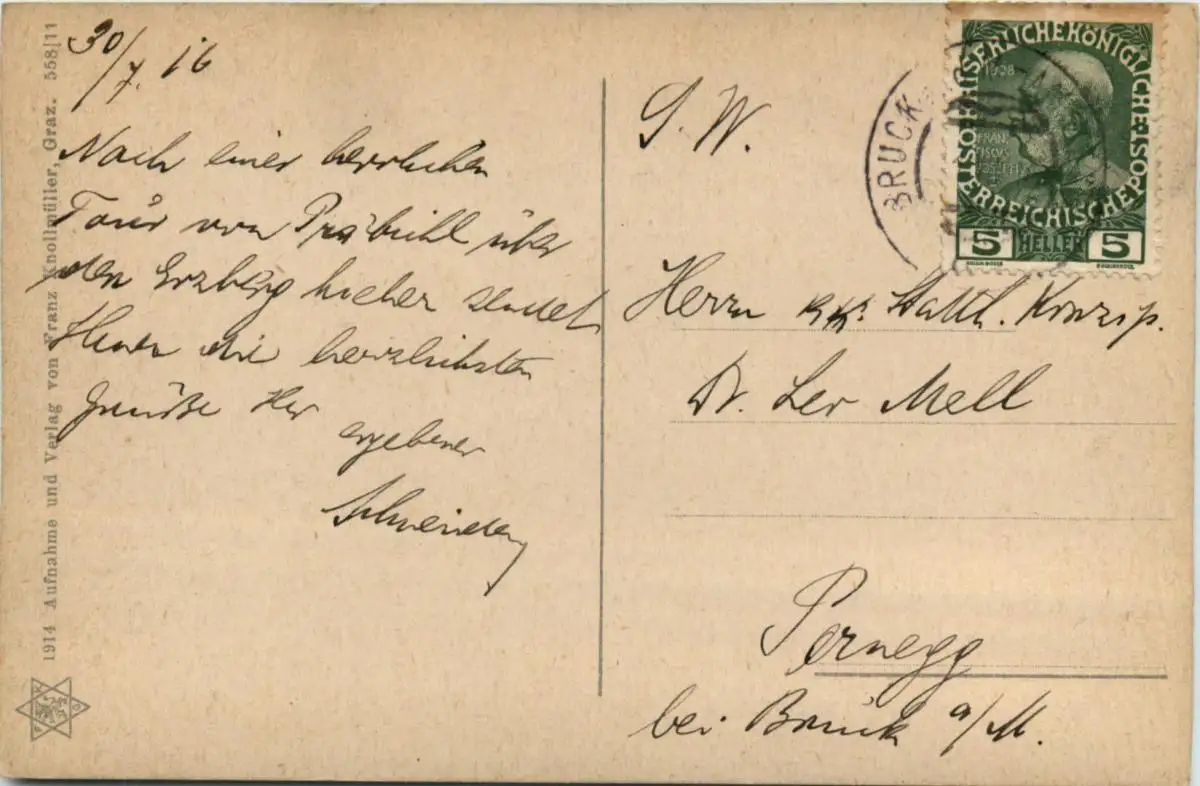 30/7. 16
Nach einer herrlichen
Tour von Präbichl über
den Erzberg hieher sendet
Ihnen die herzlichsten
Grüße Ihr
ergebener
S. W.
Herrn k.k. Statth. Konzip.
Dr. Leo Mell
Pernegg
bei Bruck a/M.
1914 Aufnahme und Verlag von Franz Knollmüller, Graz. 558|11
BRUCK
KAISERLICHEKÖNIGLICHE
ÖSTERREICHISCHEPOST
1908
FRAN
CISCVS
IOSEPH I
5 HELLER 5